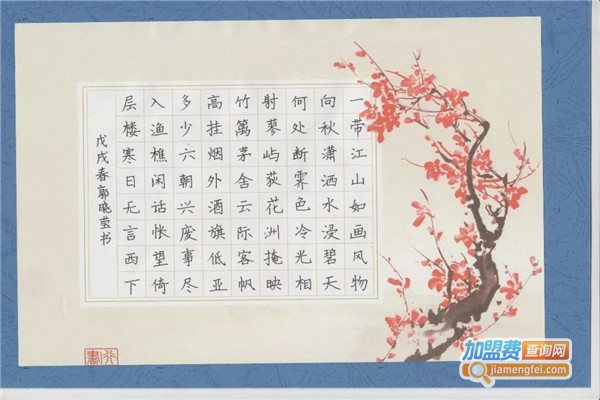 一带江山如画风物
向秋潇洒水浸碧天
何处断霁色冷光相
射蓼屿荻花洲掩映
竹篱茅舍云际客帆
高挂烟外酒旗低亚
多少六朝兴废事尽
入渔樵闲话怅望倚
层楼寒日无言西下
戊戌春郭晓莹书
加盟费查询网
jiamengfei.com